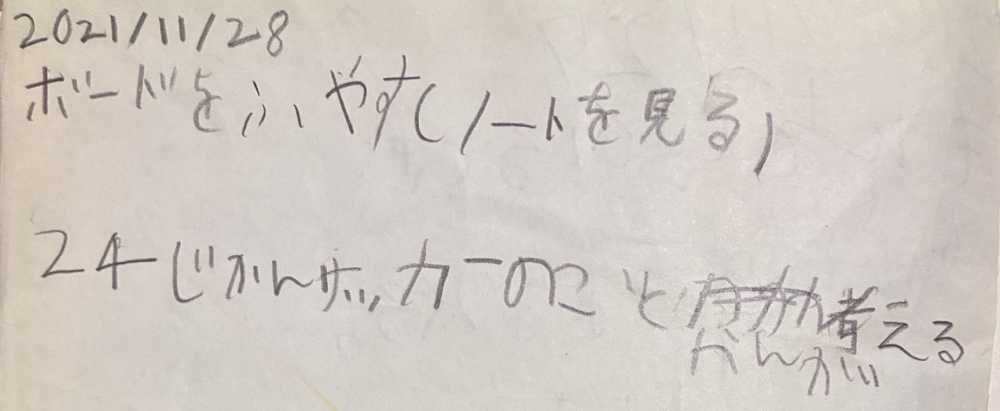 2021/11/28
ボードをふやす(ノートを見る)
24じかんサッカーのこと考える
かんが